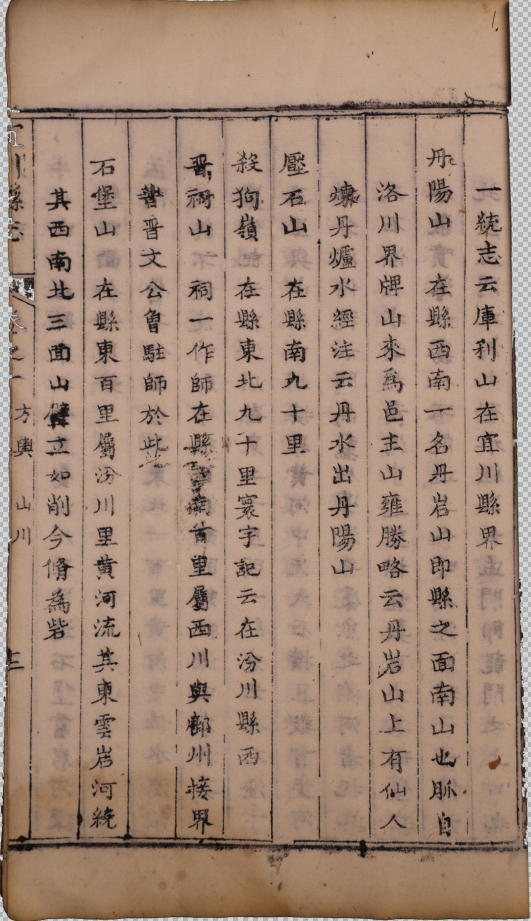 一統志云庫利山在宜川縣界
丹陽山 在縣西南一名丹岩山即縣之面南山也脈自
洛川界牌山來為邑主山雍勝略云丹岩山上有仙人
煉丹爐水經注云丹水出丹陽山
壓石山 在縣南九十里
殺狗嶺 在縣東北九十里寰宇記云在汾川縣西
晋祠山 祠一作師在縣南百里屬西川與鄜州接界
晉文公曾駐師於此
石堡山 在縣東百里屬汾川里黄河流其東雲岩河繞
其西南北三面山壁立如削今脩為砦
川縣志 卷之一 方輿 山川